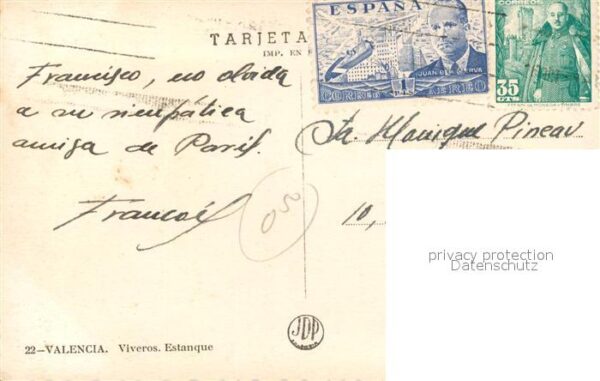 TARJETA
IMP. EN
ESPAÑA
JUAN DE LA CIERVA
1
CORREO AEREO
CORREOS
35
Francisco, no olvida
a su simpática
amiga de París.
Sta Monique Pineau
10,
50
privacy protection
Datenschutz
JDP
22—VALENCIA. Viveros. Estanque